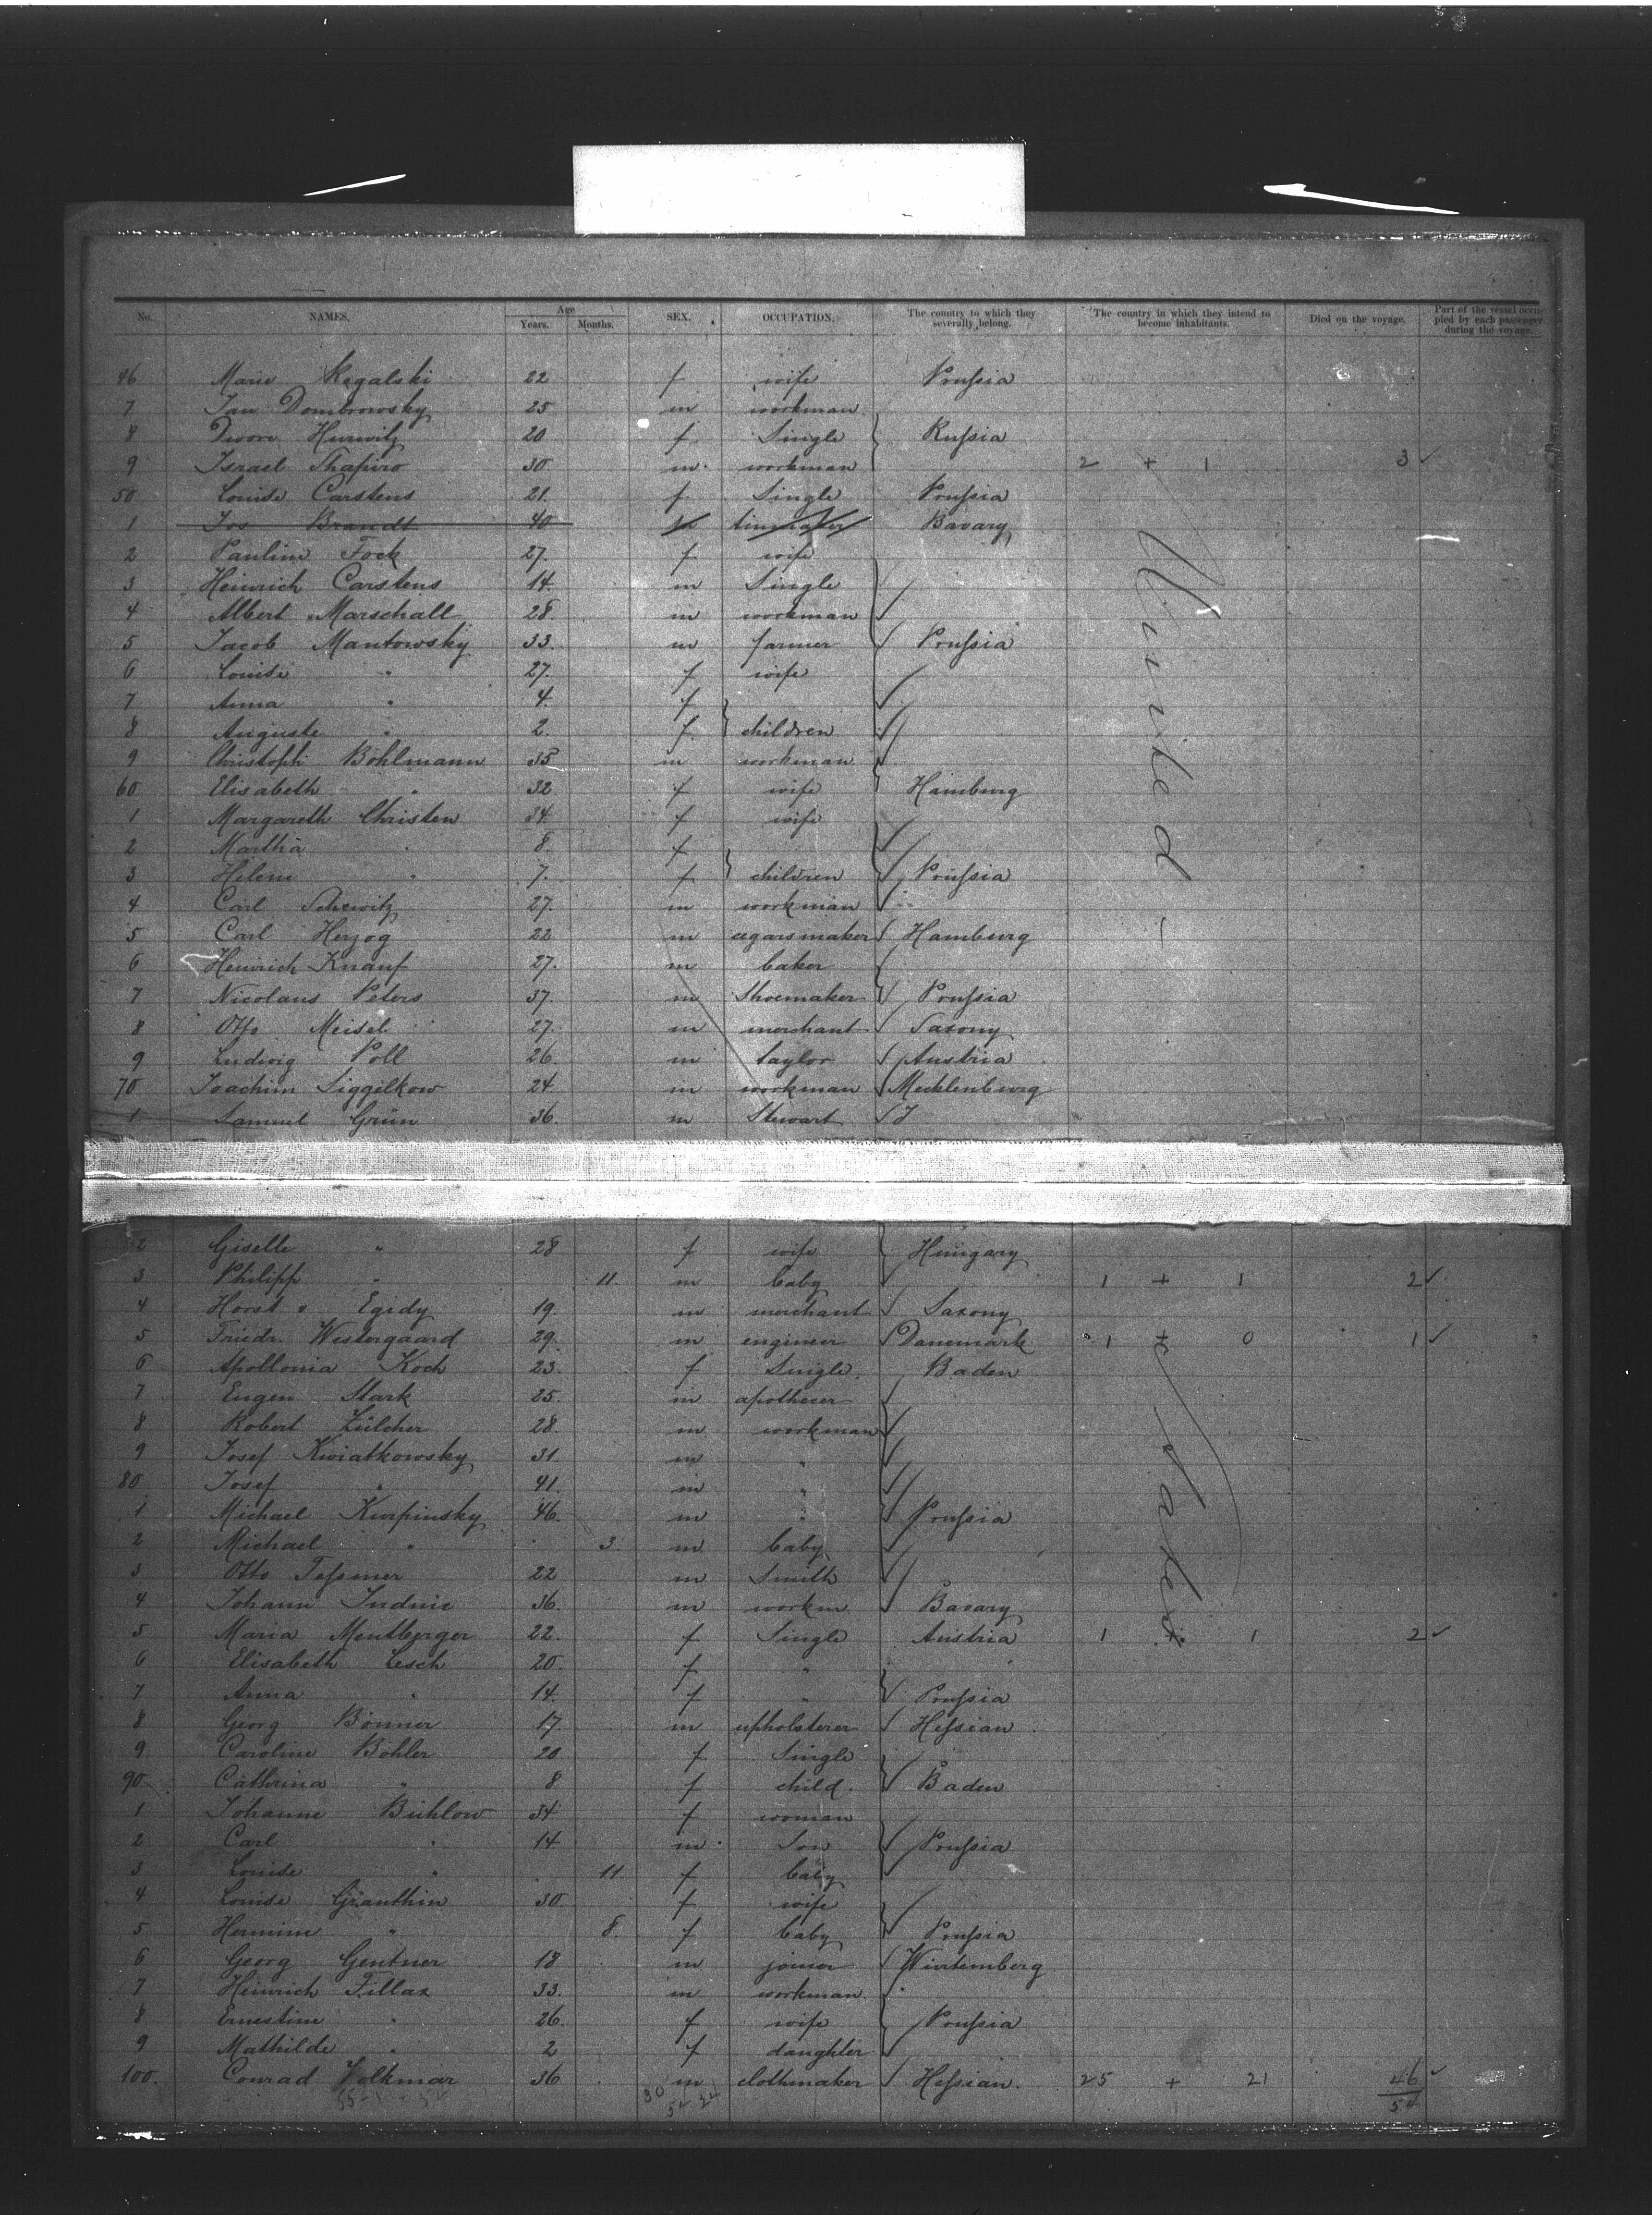 No. NAMES. Age Years. Months. SEX. OCCUPATION. The country to which they severally belong. The country in which they intend to become inhabitants. Died on the voyage. Part of the vessel occupied by each passenger during the voyage.
46 Marie Rogalski 22 f wife Prussia
7 Jan Dombrowsky 25 m workman
8 Dwore Hurwitz 20 f Single Russia
9 Israel Shapiro 30 m workman 2 + 1 3 ✓
50 Louise Carstens 21 f Single Prussia
1 Jos Brandt 40 m tinmaker Bavary
2 Pauline Fock 27 f wife
3 Heinrich Carstens 14 m Single
4 Albert Marschall 28 m workman
5 Jacob Mantowsky 33 m farmer Prussia
6 Louise " 27 f wife
7 Anna " 4 f
8 Auguste " 2 f children
9 Christoph Böhlmann 35 m workman
60 Elisabeth " 32 f wife Hamburg
1 Margareth Christen 34 f wife
2 Martha " 8 f
3 Helene " 7 f children Prussia
4 Carl Schewitz 27 m workman
5 Carl Herzog 22 m cegarsmaker Hamburg
6 Heinrich Knauf 27 m baker
7 Nicolaus Peters 37 m Shoemaker Prussia
8 Otto Meisel 27 m merchant Saxony
9 Ludwig Poll 26 m taylor Austria
70 Joachim Siggelkow 24 m workman Mecklenburg
1 Samuel Grün 36 m Stewart
United
2 Giselle " 28 f wife Hungary
3 Philipp " 11 m baby 1 + 1 2 ✓
4 Horst v Egidy 19 m merchant Saxony
5 Friedr. Westergaard 29 m engineer Danemark 1 + 0 1 ✓
6 Apollonia Koch 23 f Single Baden
7 Eugen Stark 25 m apothecer
8 Robert Zülcher 28 m workman
9 Josef Kwiatkowsky 31 m "
80 Josef " 41 m "
1 Michael Kurpinsky 46 m " Prussia
2 Michael " 3 m baby
3 Otto Tessmer 22 m Smith
4 Johann 36 m workm Bavary
5 Maria Montberger 22 f Single Austria 1 + 1 2 ✓
6 Elisabeth Lesch 20 f "
7 Anna " 14 f " Prussia
8 Georg Bönner 17 m upholsterer Hessian
9 Caroline Böhler 20 f Single
90 Cathrina " 8 f child Baden
1 Johanne Bühlow 34 f woman
2 Carl " 14 m Son Prussia
3 Louise " 11 f baby
4 Louise Granthin 30 f wife
5 Hermine " 8 f baby Prussia
6 Georg Gentner 18 m joiner Würtemberg
7 Heinrich Fillax 33 m workman
8 Ernestine " 26 f wife Prussia
9 Mathilde " 2 f daughter
100 Conrad Volkmar 36 m clothmaker Hessian 25 + 21 46 ✓
States
30 54